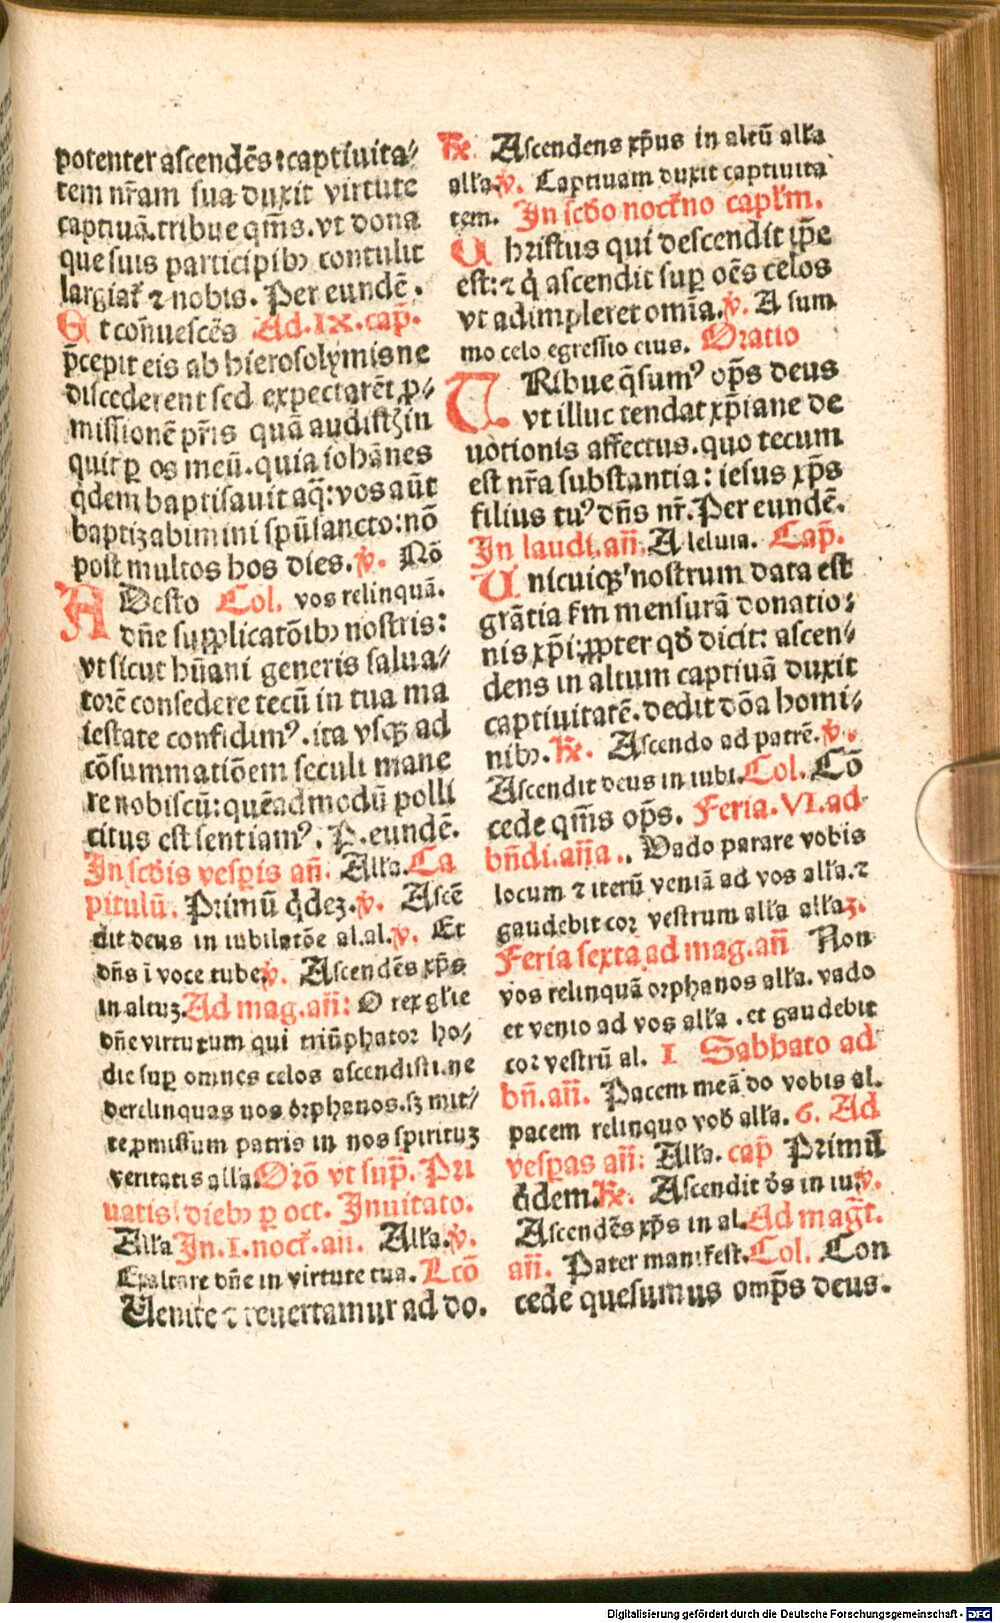 potenter ascendēs: captiuita⸗
tem nr̄am sua duxit virtute
captiuā. tribue qm̄s. vt dona
que suis participibꝯ contulit
largiat᷑ ⁊ nobis. Per eundē.
Et coñuescēs Ad. IX. cap̄.
p̄cepit eis ab hierosolymis ne
discederent sed expectarēt ꝓ⸗
missionē pr̄is quā audistꝫ in
quit ꝑ os meū. quia iohānes
q̇dem baptisauit aq̄: vos aūt
baptizabimini spū sancto: nō
post multos hos dies. ꝟ. Nō
ADesto Col. vos relinquā.
dn̄e supplicatōibꝯ nostris:
vt sicut hūani generis salua⸗
torē consedere tecū in tua ma
iestate confidimꝰ. ita vsqꝫ ad
cōsummatiōem seculi mane
re nobiscū: quēadmodū polli
citus est sentiamꝰ. P. eundē.
In scd̄is vesꝑis an̄. Alľa. Ca
pitulū. Primū q̇dez. ꝟ. Ascē
dit deus in iubilatōe al. al. ꝟ. Et
dn̄s ī voce tube ꝟ. Ascendēs xp̄s
in altuꝫ. Ad mag. an̄: O rex glīe
dn̄e virtutum qui triūphator ho⸗
die suꝑ omnes celos ascendisti. ne
derelinquas nos orphanos. sꝫ mit⸗
te ꝓmissum patris in nos spirituꝫ
veritatis alľa. Orō vt sup̄. Pri
uatis diebꝯ ꝑ oct. Inuitato.
Alľa In. I. noct᷑. an̄. Alľa. ꝟ.
Exaltare dn̄e in virtute tua. Lcō
Uenite ⁊ reuertamur ad do.
℞. Ascendens xp̄us in altū alľa
alľa. ꝟ. Captiuam duxit captiuita
tem. In scd̄o noct᷑no capľm.
Christus qui descendit ip̄e
est: ⁊ q̇ ascendit suꝑ oēs celos
vt adimpleret omīa. ꝟ. A sum
mo celo egressio eius. Oratio
TRibue q̄sumꝰ op̄s deus
vt illuc tendat xp̄iane de
uotionis affectus. quo tecum
est nr̄a substantia: iesus xp̄s
filius tuꝰ dn̄s nr̄. Per eundē.
In laudi. an̄. Aleluia. Cap̄.
Unicuiqꝫ nostrum data est
grātia ẜm mensurā donatio⸗
nis xp̄i: ꝓpter qđ dicit: ascen⸗
dens in altum captiuā duxit
captiuitatē. dedit dōa homi⸗
nibꝯ. ℞. Ascendo ad patrē. ꝟ.
Ascendit deus in iubi. Col. Cō
cede qm̄s op̄s. Feria. VI. ad
bn̄di. an̄a. Vado parare vobis
locum ⁊ iterū veniā ad vos alľa. ⁊
gaudebit cor vestrum alľa alľaꝫ.
Feria sexta ad mag. an̄ Non
vos relinquā orphanos alľa. vado
et venio ad vos alľa. et gaudebit
cor vestrū al. 1 Sabbato ad
bn̄. an̄. Pacem meā do vobis al.
pacem relinquo vob̄ alľa. 6. Ad
vesꝑas an̄: Alľa. cap̄ Primū
q̇dem. ℞. Ascendit ds̄ in iu. ꝟ.
Ascendēs xp̄s in al. Ad magt᷑.
an̄. Pater manifest. Col. Con
cede quesumus omp̄s deus.
Digitalisierung gefördert durch die Deutsche Forschungsgemeinschaft - DFG